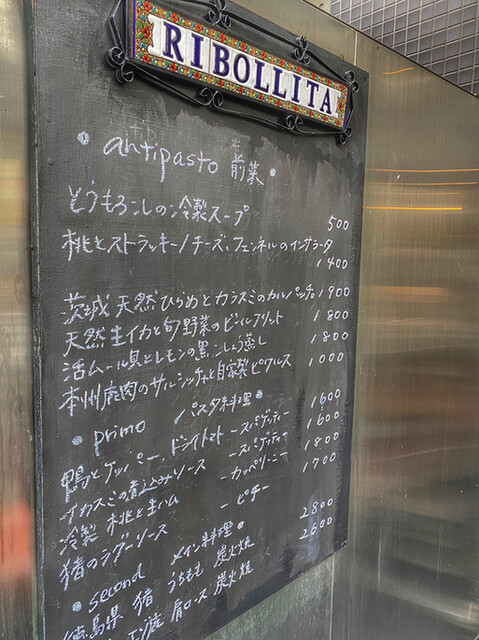 RIBOLLITA
• antipasto 前菜 •
とうもろこしの冷製スープ 500
桃とストラッキーノチーズ、フェンネルのインサラータ 1400
茨城 天然ひらめとカラスミのカルパッチョ 1900
天然生イカと旬野菜のビールフリット 1800
活ムール貝とレモンの黒こしょう蒸し 1800
本州鹿肉のサルシッチャと自家製ピクルス 1000
• primo パスタ料理 •
鴨とケッパー、ドライトマト - スパゲッティー 1600
イカスミの煮込みソース - スパゲッティー 1600
冷製 桃と生ハム - カッペリーニ 1800
猪のラグーソース - ピチー 1700
• second メイン料理 •
徳島県 猪 うちもも 炭火焼 2800
鹿 肩ロース 炭火焼 2600